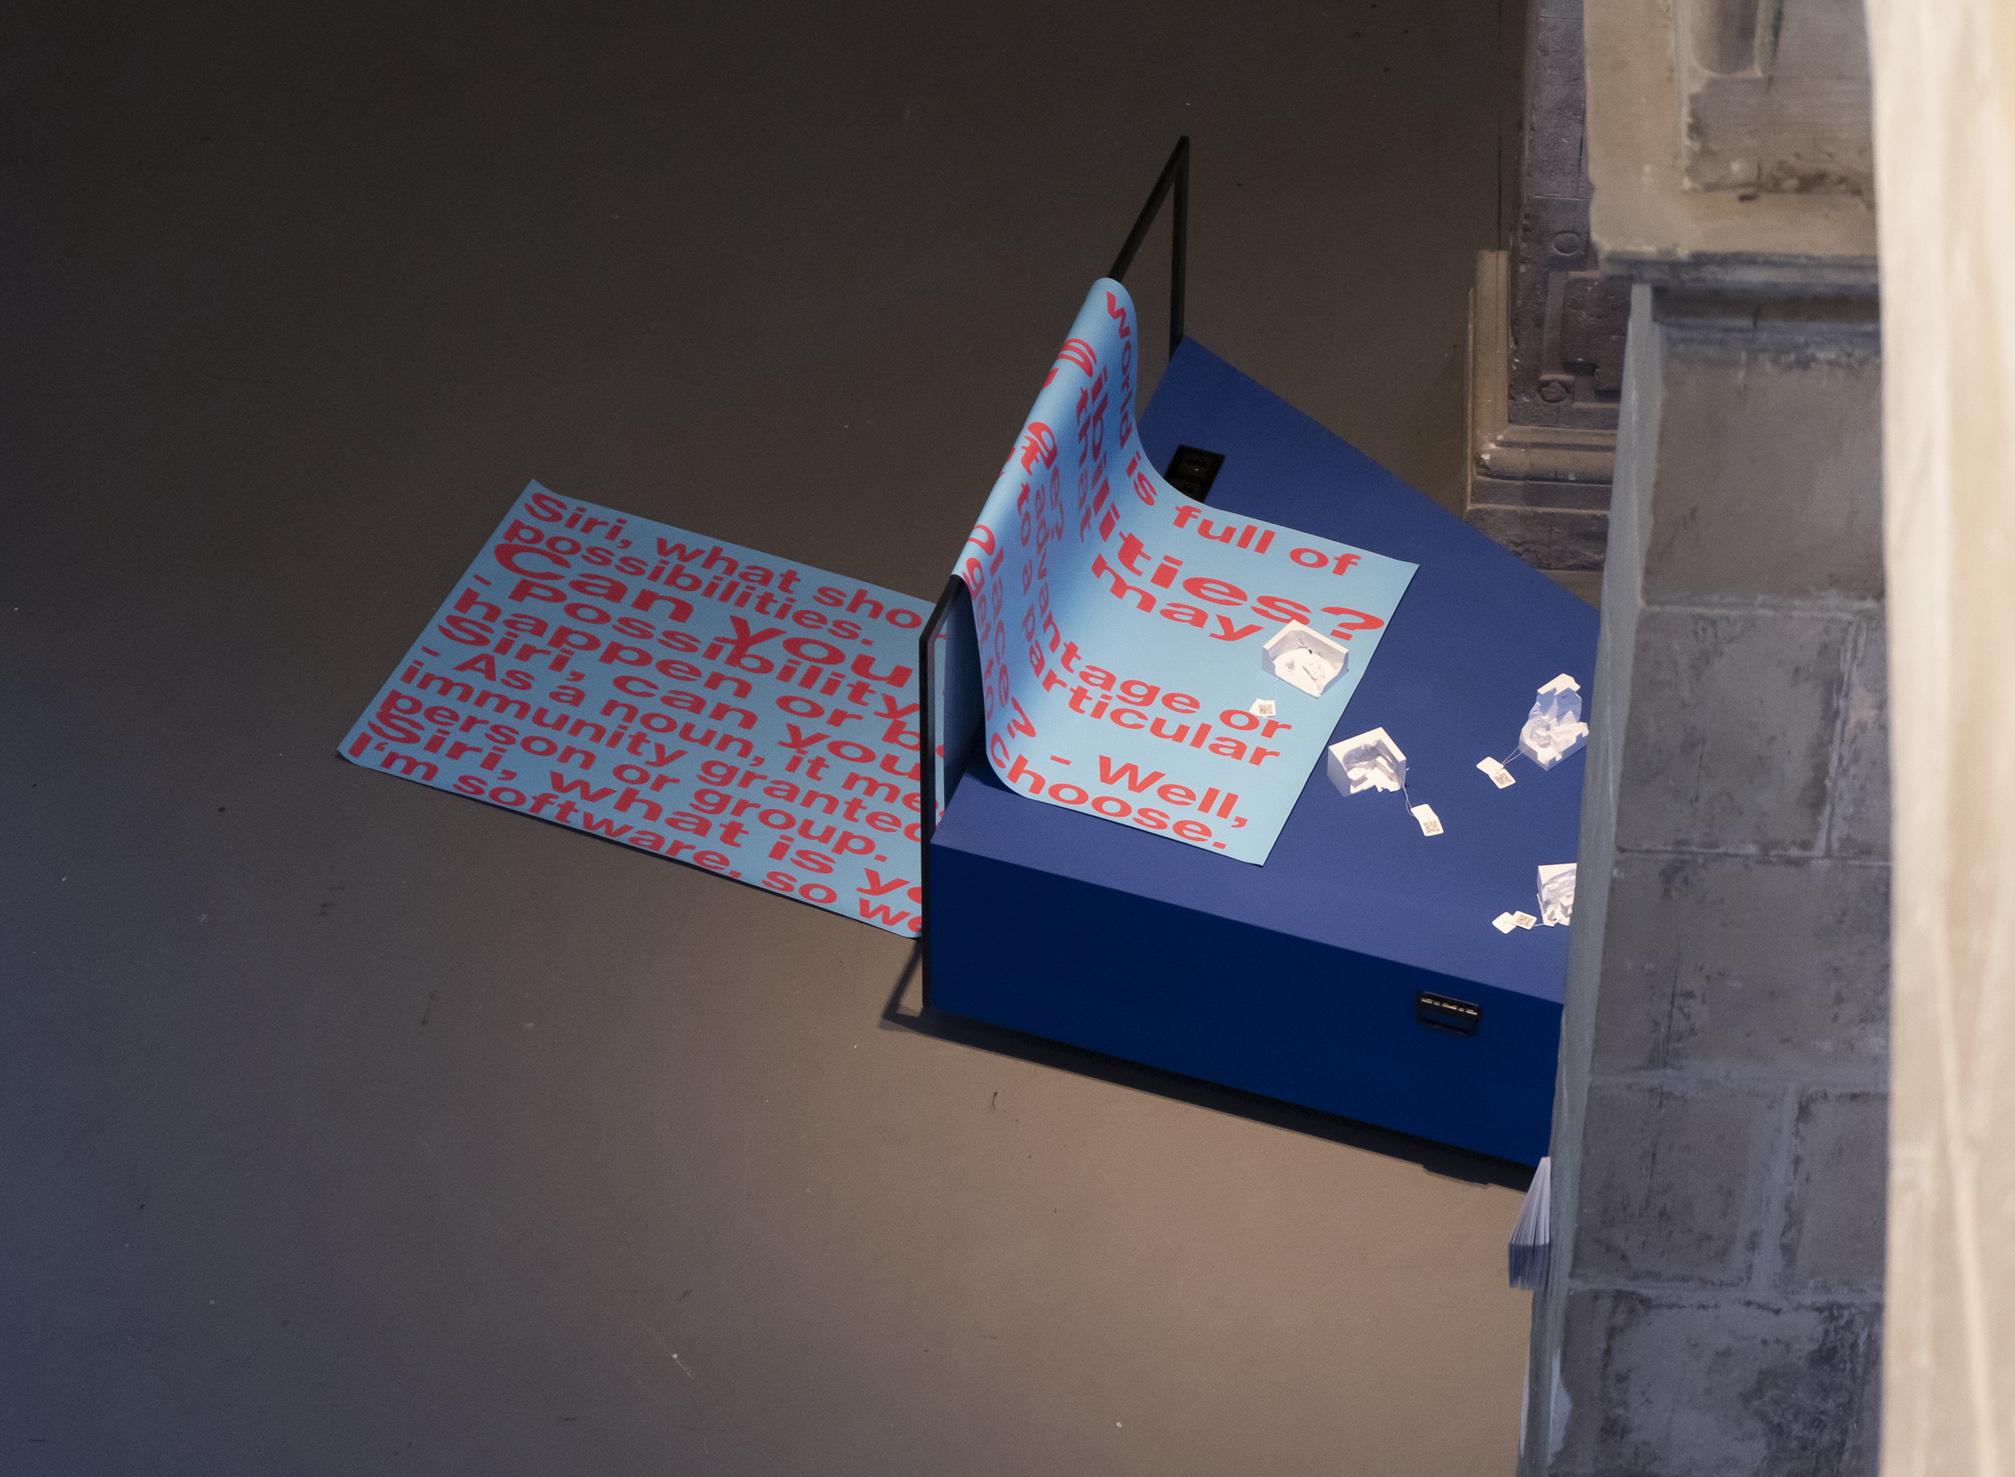 Siri, what sho
possibilities.
Can you
- Possibility
happen or b
Siri, can you
- As a noun, it me
immunity granted
person or group.
Siri, what is yo
I'm software, so we
world is full of
sibilities?
that may
ge?
advantage or
to a particular
place?
- Well,
get to choose.